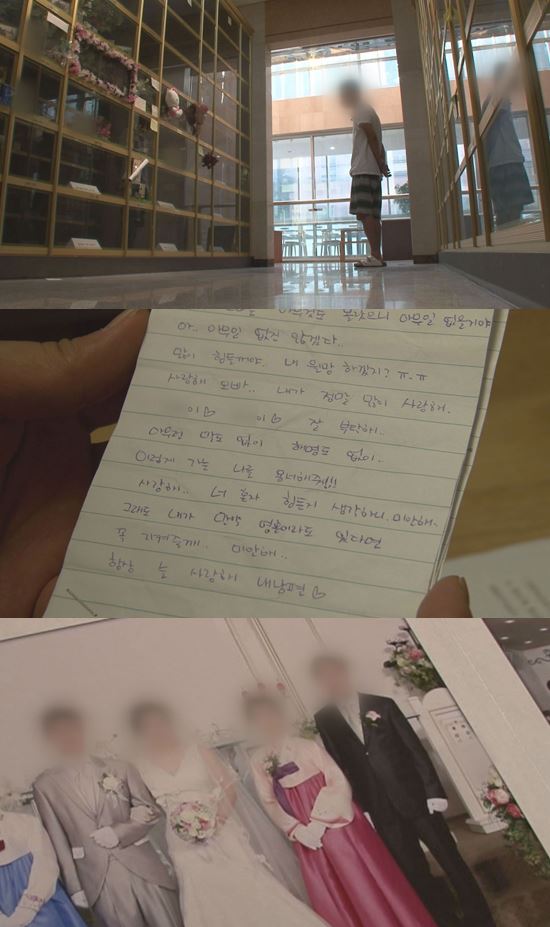 아무것도 몰랐으니 아무일 없을거야
아.. 아무일 없진 않겠다..
많이 힘들거야. 내 원망 하겠지? ㅠ.ㅠ
사랑해 오빠.. 내가 정말 많이 사랑해.
이♡ 이♡ 잘 부탁해..
아무런 말도 없이 해명도 없이..
이렇게 가는 나를 용서해줘!!
사랑해.. 너 혼자 힘든지 생각하니. 미안해.
그래도 내가 영혼이라도 있다면
꼭 지켜줄께. 미안해..
항상 늘 사랑해 내남편♡